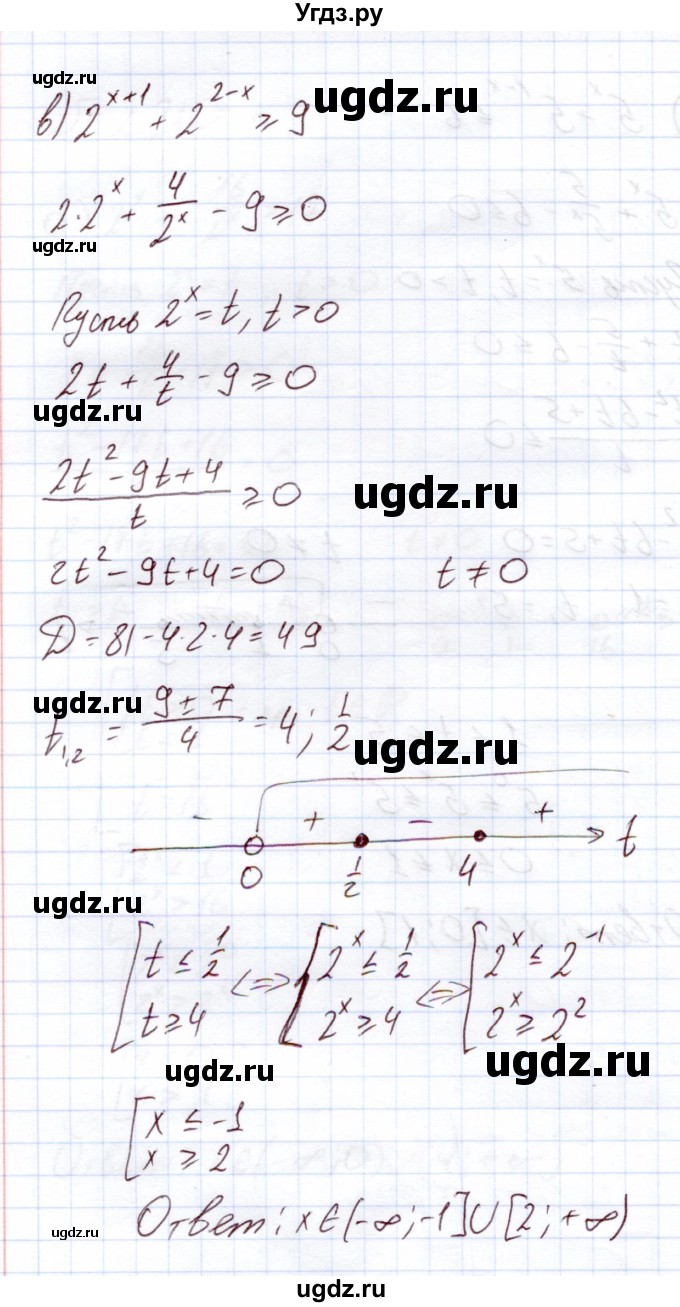 Угдз.ру
ugdz.ru
в) 2^(x+1) + 2^(2-x) ≥ 9
ugdz.ru
2·2^x + 4/2^x - 9 ≥ 0
ugdz.ru
Пусть 2^x = t, t > 0
2t + 4/t - 9 ≥ 0
ugdz.ru
(2t² - 9t + 4)/t ≥ 0
ugdz.ru
2t² - 9t + 4 = 0 t ≠ 0
Д = 81 - 4·2·4 = 49
ugdz.ru
t₁,₂ = (9 ± 7)/4 = 4; 1/2
ugdz.ru
- + - +
0 1/2 4 t
ugdz.ru
[ t ≤ 1/2 <=> [ 2^x ≤ 1/2 <=> [ 2^x ≤ 2^(-1)
t ≥ 4 2^x ≥ 4 2^x ≥ 2²
ugdz.ru
ugdz.ru
[ x ≤ -1
x ≥ 2
Ответ: x ∈ (-∞; -1] ∪ [2; +∞)
ugdz.ru
ugdz.ru